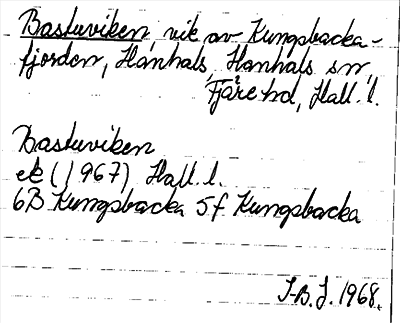 Bastuviken, vik av Kungsbacka-
fjorden, Hanhals, Hanhals sn
Fjäre hd, Hall. l.
Bastuviken
ek (1967) Hall. l.
6B Kungsbacka 5f Kungsbacka
I-B. J. 1968.